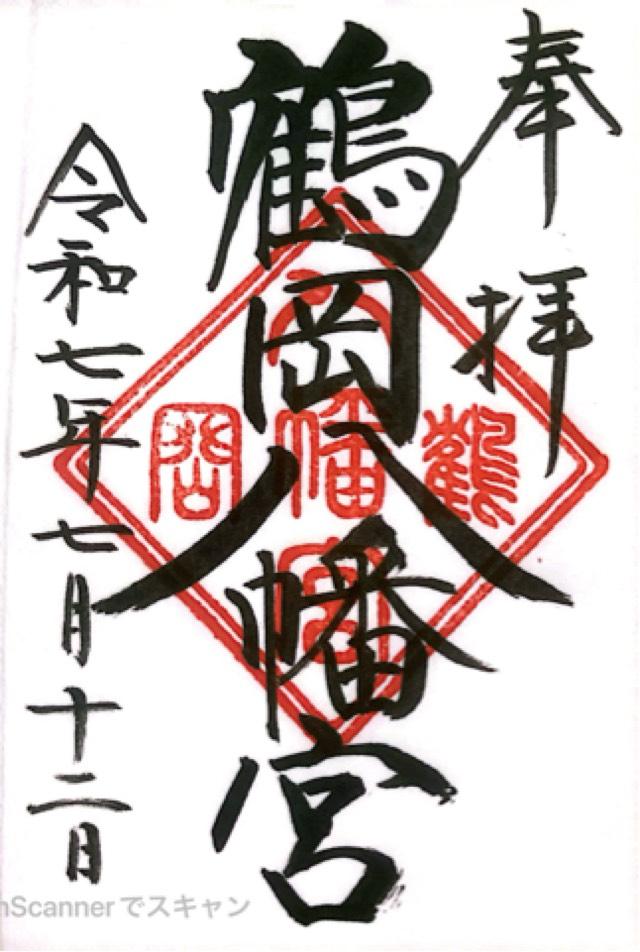 奉拝
鶴岡八幡宮
令和七年七月十二日
鶴
岡
八
幡
宮
nScannerでスキャン